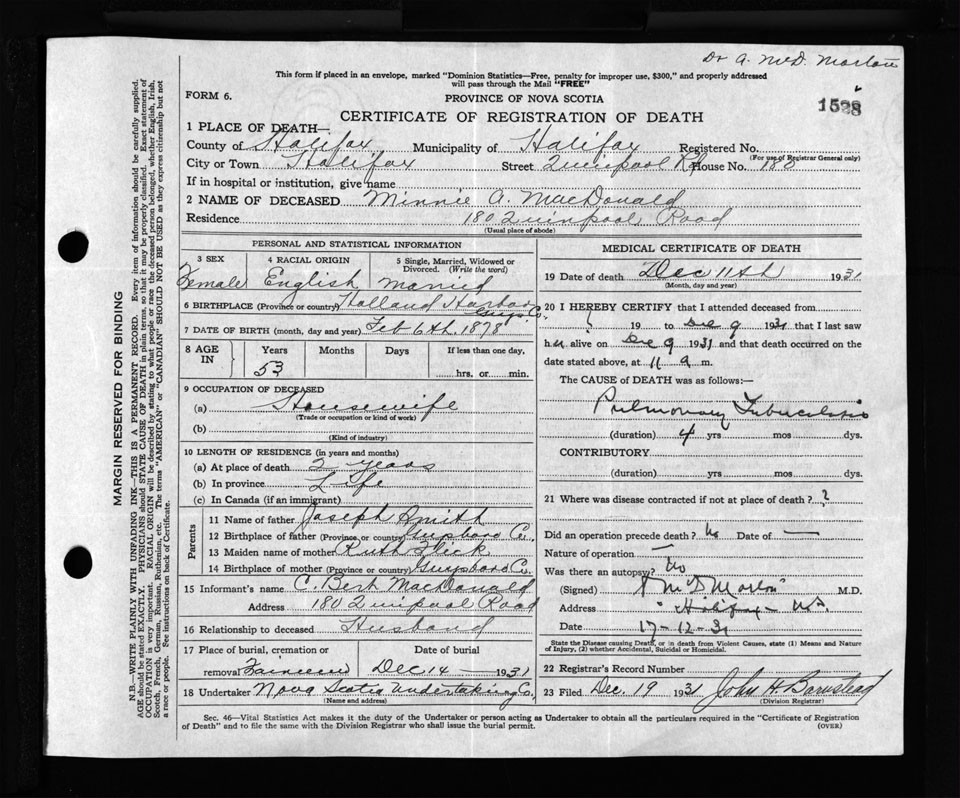 Dr A. McD. Morton
This form if placed in an envelope, marked "Dominion Statistics—Free, penalty for improper use, $300," and properly addressed
will pass through the Mail "FREE"
FORM 6.
PROVINCE OF NOVA SCOTIA
CERTIFICATE OF REGISTRATION OF DEATH
1 PLACE OF DEATH—
County of Halifax Municipality of Halifax Registered No.
(For use of Registrar General only)
City or Town Halifax Street Quinpool Rd House No. 180
If in hospital or institution, give name
2 NAME OF DECEASED Minnie A. MacDonald
Residence 180 Quinpool Road
(Usual place of abode)
PERSONAL AND STATISTICAL INFORMATION
3 SEX 4 RACIAL ORIGIN 5 Single, Married, Widowed or Divorced. (Write the word)
Female English Married
6 BIRTHPLACE (Province or country) Holland Harbor Guys. Co.
7 DATE OF BIRTH (month, day and year) Feb 6th. 1878
8 AGE IN Years Months Days If less than one day,
53 hrs. or min.
9 OCCUPATION OF DECEASED
(a) Housewife
(Trade or occupation or kind of work)
(b)
(Kind of industry)
10 LENGTH OF RESIDENCE (in years and months)
(a) At place of death years
(b) In province Life
(c) In Canada (if an immigrant)
Parents
11 Name of father Joseph Smith
12 Birthplace of father (Province or country) Guysboro Co.
13 Maiden name of mother Ruth
14 Birthplace of mother (Province or country) Guysboro Co.
15 Informant's name C. Bert MacDonald
Address 180 Quinpool Road
16 Relationship to deceased Husband
17 Place of burial, cremation or Date of burial
removal Fairview Dec 14 1931
18 Undertaker Nova Scotia Undertaking Co.
(Name and address)
MEDICAL CERTIFICATE OF DEATH
19 Date of death Dec 11th 1931
(Month, day and year)
20 I HEREBY CERTIFY that I attended deceased from
? 19 to Dec 9 1931 that I last saw
her alive on Dec 9 1931 and that death occurred on the
date stated above, at 11 a m.
The CAUSE OF DEATH was as follows:—
Pulmonary Tuberculosis
(duration) 4 yrs mos dys.
CONTRIBUTORY
(duration) yrs mos dys.
21 Where was disease contracted if not at place of death? ?
Did an operation precede death? No Date of —
Nature of operation —
Was there an autopsy? No
(Signed) A McD Morton M.D.
Address Halifax - N.S.
Date 17-12-31
State the Disease causing Death, or in death from Violent Causes, state (1) Means and Nature
of Injury, (2) whether Accidental, Suicidal or Homicidal.
22 Registrar's Record Number
23 Filed Dec. 19 1931 John H. Barnstead
(Division Registrar)
Sec. 46—Vital Statistics Act makes it the duty of the Undertaker or person acting as Undertaker to obtain all the particulars required in the "Certificate of Registration
of Death" and to file the same with the Division Registrar who shall issue the burial permit. (OVER)
MARGIN RESERVED FOR BINDING
N.B.—WRITE PLAINLY WITH UNFADING INK—THIS IS A PERMANENT RECORD. Every item of information should be carefully supplied.
AGE should be stated EXACTLY. PHYSICIANS should STATE CAUSE OF DEATH in plain terms, so that it may be properly classified. Exact statement of
OCCUPATION is very important. RACIAL ORIGIN will be described by stating to what people or race the deceased person belonged, whether English, Irish,
Scotch, French, German, Russian, Ruthenian, etc. The terms "AMERICAN" or "CANADIAN" SHOULD NOT BE USED as they express citizenship but not
a race or people. See instructions on back of Certificate.